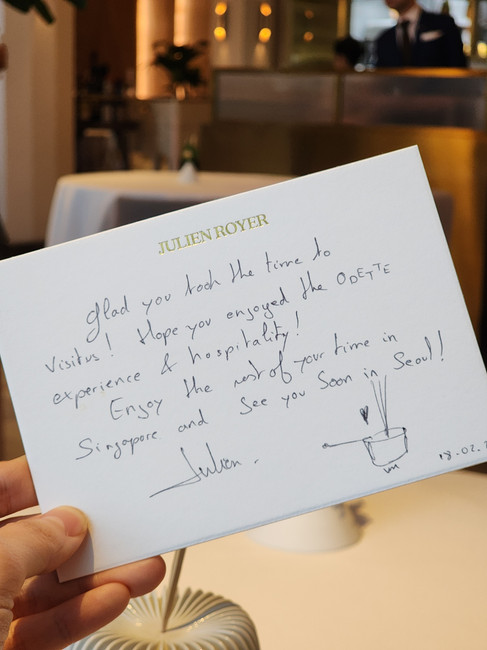 JULIEN ROYER
Glad you took the time to
visit us! Hope you enjoyed the ODETTE
experience & hospitality!
Enjoy the rest of your time in
Singapore and see you soon in Seoul!
Julien.
18.02.2